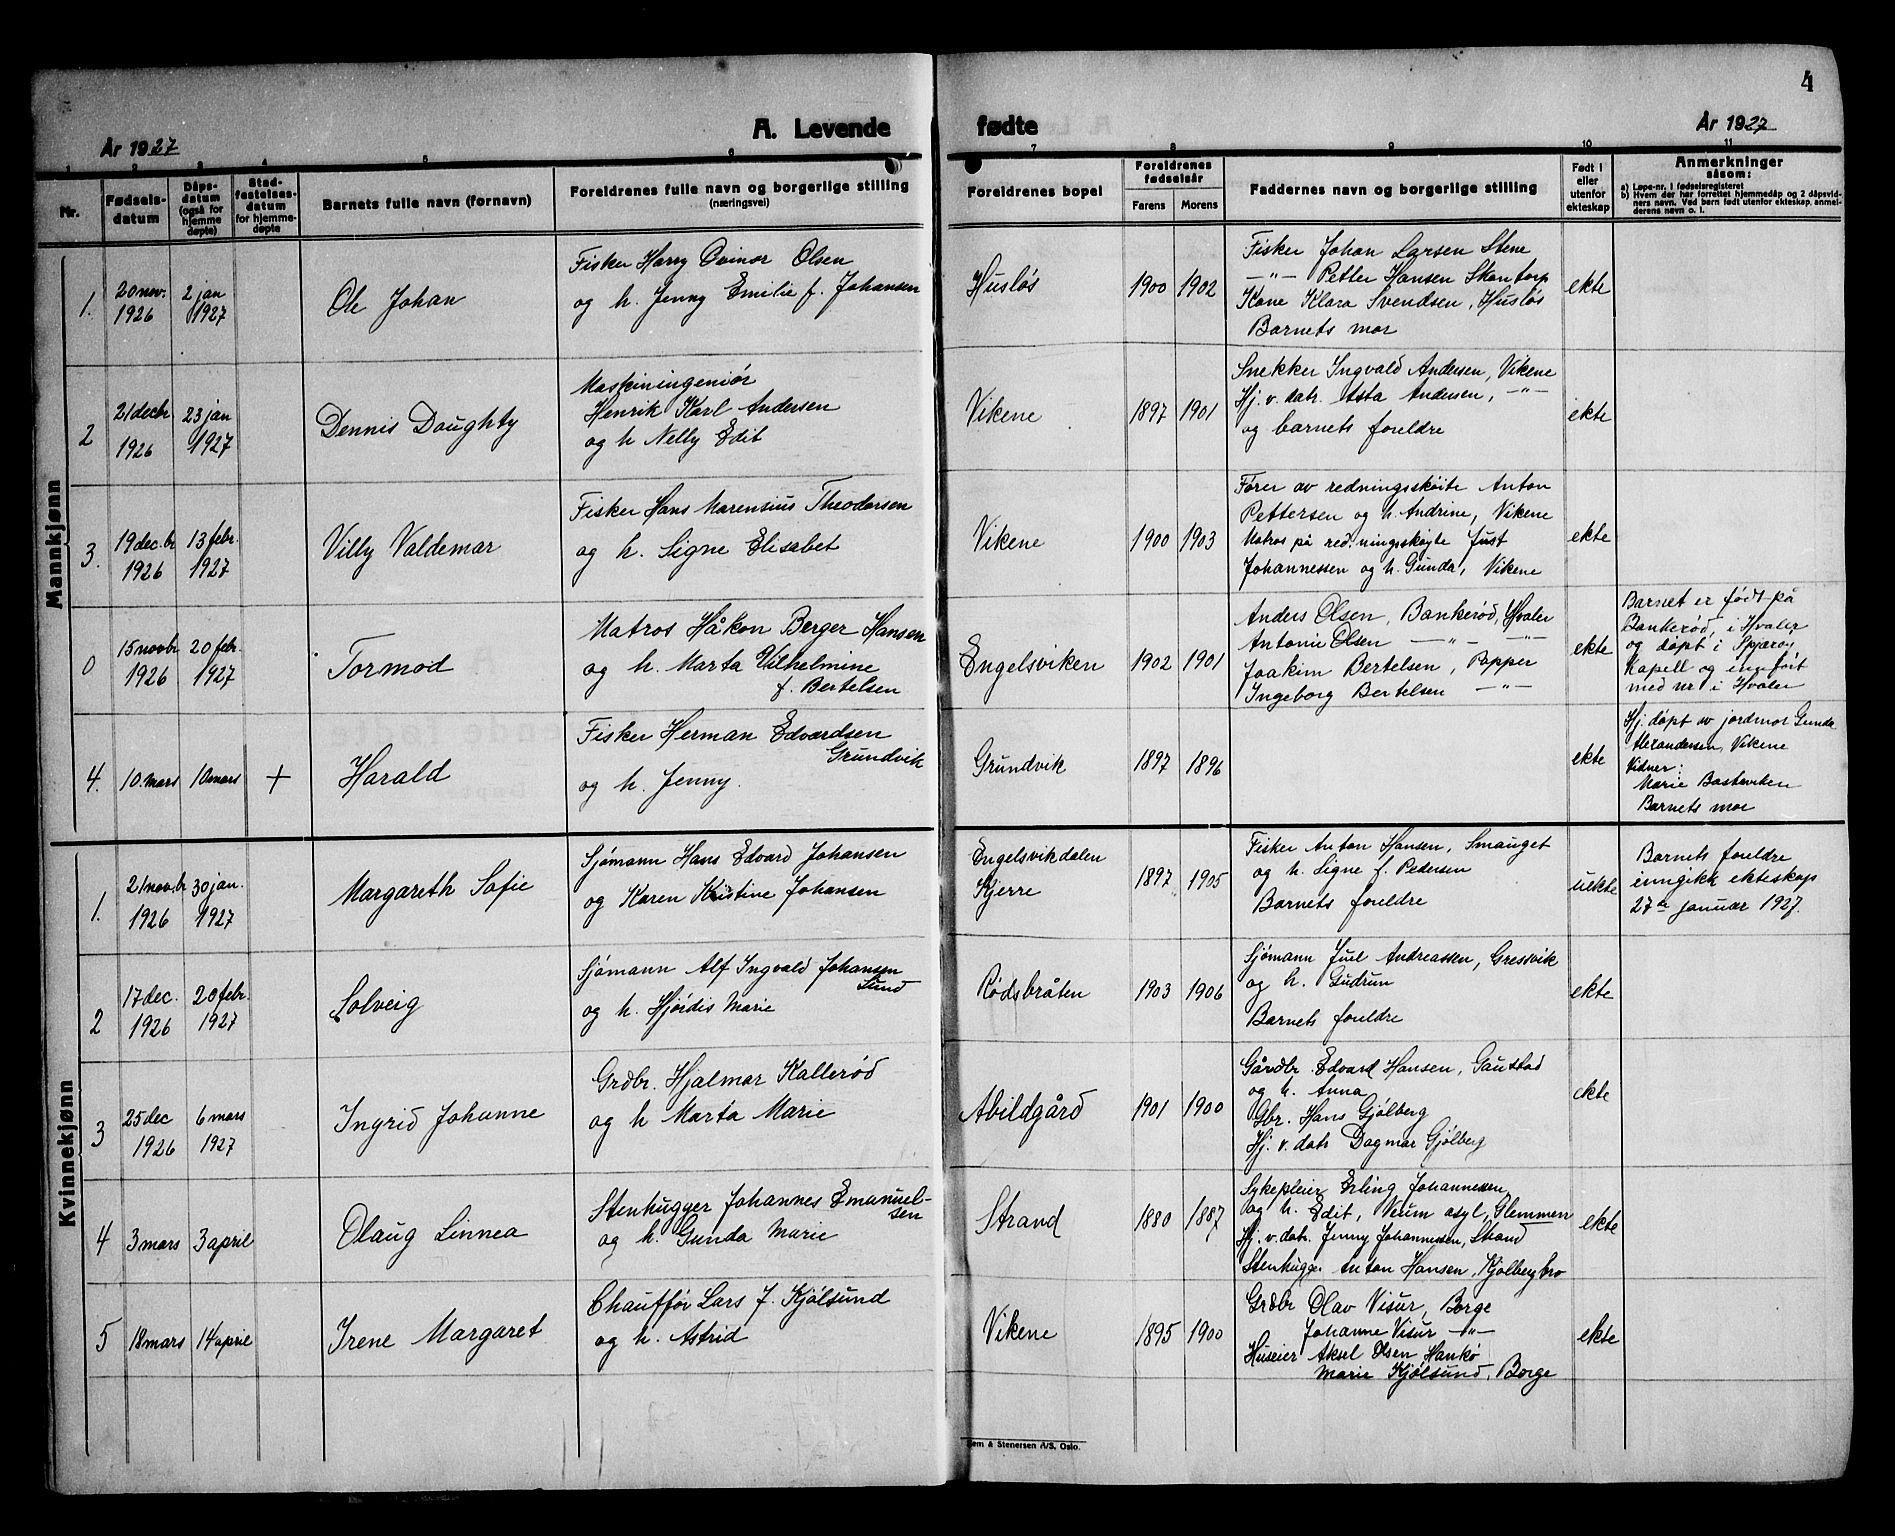 4
År 1927
A. Levende fødte
År 1927
1 2 3 4 5 6 7 8 9 10 11
Nr.
Fødselsdatum
Dåpsdatum (også for hjemmedøpte)
Stadfestelsesdatum for hjemmedøpte
Barnets fulle navn (fornavn)
Foreldrenes fulle navn og borgerlige stilling
(næringsvei)
Foreldrenes bopel
Foreldrenes fødselsår
Farens Morens
Faddernes navn og borgerlige stilling
Født i eller utenfor ekteskap
Anmerkninger
såsom:
a) Løpe-nr. i fødselsregisteret
b) Hvem der har forrettet hjemmedåp og 2 dåpsvidners navn. Ved barn født utenfor ekteskap, anmelderens navn o. l.
Mannkjønn
1.
20 nov. 1926
2 jan 1927
Ole Johan
Fisker Harry Ovinor Olsen
og h. Jenny Emilie f. Johansen
Husløs
1900 1902
Fisker Johan Larsen Stene
—"— Petter Hansen Skantorp
Kone Klara Svendsen, Husløs
Barnets mor
ekte
2
21 decbr 1926
23 jan 1927
Dennis Doughty
Maskiningeniør
Henrik Karl Andersen
og h Nelly Edit
Vikene
1897 1901
Snekker Ingvald Andersen, Vikene
Hj. v. datr. Asta Andersen, —"—
og barnets foreldre
ekte
3.
19 dec.br 1926
13 febr. 1927
Villy Valdemar
Fisker Hans Marensius Theodorsen
og h. Signe Elisabet
Vikene
1900 1903
Fører av redningsskøite Anton
Pettersen og h. Andrine, Vikene
Matros på redningsskøyte Just
Johannessen og h. Gunda, Vikene
ekte
0
15 novbr 1926
20 febr. 1927
Tormod
Matros Håkon Berger Hansen
og h. Marta Vilhelmine
f. Bertelsen
Engelsviken
1902 1901
Anders Olsen, Bankerød, Hvaler
Antonie Olsen —"— —"—
Joakim Bertelsen, Papper
Ingeborg Bertelsen —"—
ekte
Barnet er født på
Bankerød, i Hvaler
og døpt i Spjærøy
Kapell og er ført
med nr i Hvaler
4.
10. mars
10 mars
+
Harald
Fisker Herman Edvardsen
Grundvik
og h. Jenny.
Grundvik
1897 1896
ekte
Hj. døpt av jordmor Gunda
Alexandersen, Vikene
Vidner:
Marie Basteviken
Barnets mor
Kvinnekjønn
1.
21 nov.br 1926
30 jan. 1927
Margareth Sofie
Sjømann Hans Edvard Johansen
og Karen Kristine Johansen
Engelsvikdalen
Kjerre
1897 1905
Fisker Anton Hansen, Smauget
og h. Signe f. Pedersen
Barnets foreldre
uekte
Barnets foreldre
inngikk ekteskap
27de januar 1927.
2
17 dec. 1926
20 febr. 1927
Solveig
Sjømann Alf Ingvald Johansen
Sund
og h. Hjørdis Marie
Rødsbråten
1903 1906
Sjømann Juel Andreassen, Gressvik
og h. Gudrun
Barnets foreldre
ekte
3
25 dec 1926
6 mars 1927
Ingrid Johanne
Grdbr. Hjalmar Kallerød
og h Marta Marie
Abildgård
1901 1900
Gårdbr. Edvard Hansen, Gaustad
og h. Anna
Gbr. Hans Gjølberg
Hj. v. datr Dagmar Gjølberg
ekte
4
3 mars
3 april
Olaug Linnea
Stenhugger Johannes Emanuel-
sen
og h. Gunda Marie
Strand
1880 1887
Sykepleier Erling Johannesen,
og h. Edit, Veum asyl, Glemmen
Hj. v. datr. Jenny Johannessen, Strand
Stenhugger Anton Hansen, Kjølbergbro
ekte
5
18 mars
14 april
Irene Margaret
Chauffør Lars J. Kjølsund
og h. Astrid
Vikene
1895 1900
Grdbr Olav Visur, Borge
Johanne Visur —"—
Huseier Aksel Olsen Hankø
Marie Kjølsund, Borge
ekte
Sem & Stenersen A/S, Oslo.